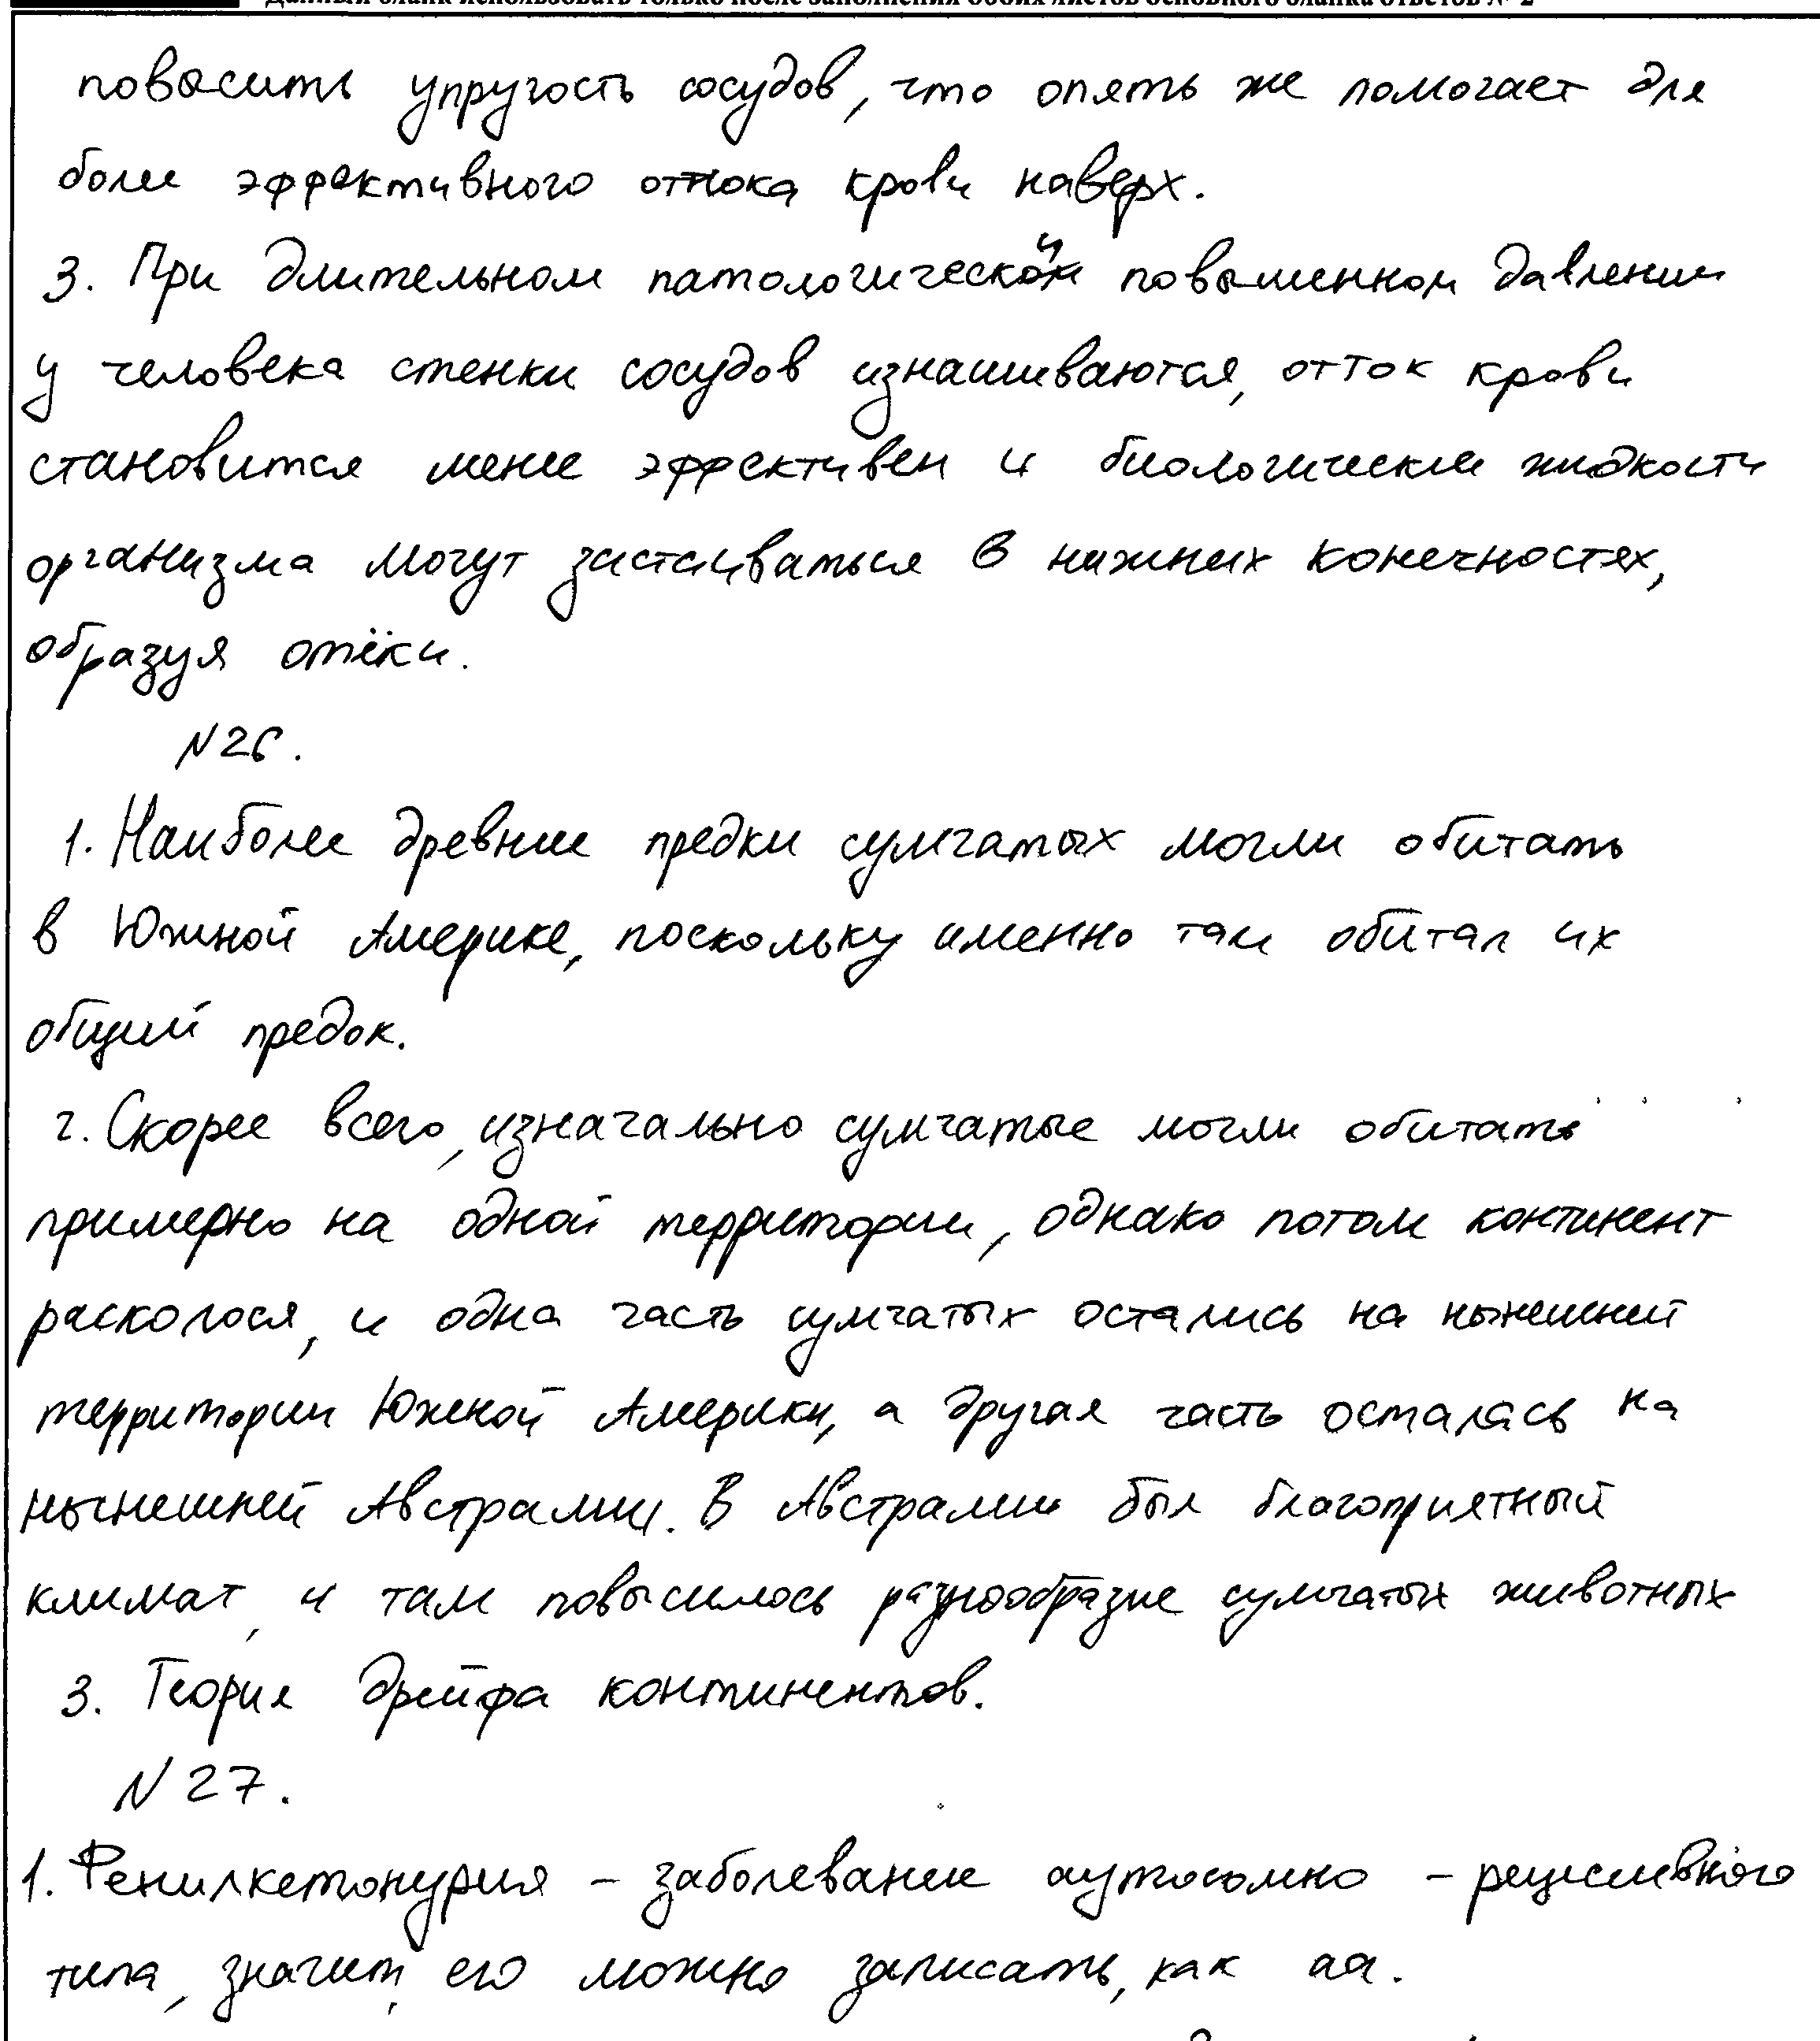 Данный бланк использовать только после заполнения обоих листов основного бланка ответов № 2
повысить упругость сосудов, что опять же помогает для
более эффективного оттока крови наверх.
3. При длительном патологически повышенном давлении
у человека стенки сосудов изнашиваются, отток крови
становится менее эффективен и биологические жидкости
организма могут застаиваться в нижних конечностях,
образуя отёки.
N26.
1. Наиболее древние предки сумчатых могли обитать
в Южной Америке, поскольку именно там обитал их
общий предок.
2. Скорее всего, изначально сумчатые могли обитать
примерно на одной территории, однако потом континент
расколося, и одна часть сумчатых остались на нынешней
территории Южной Америки, а другая часть осталась на
нынешней Австралии. В Австралии был благоприятный
климат, и там повысилось разнообразие сумчатых животных
3. Теория дрейфа континентов.
N27.
1. Фенилкетонурия – заболевание аутосомно – рецессивного
типа, значит, его можно записать, как аа.